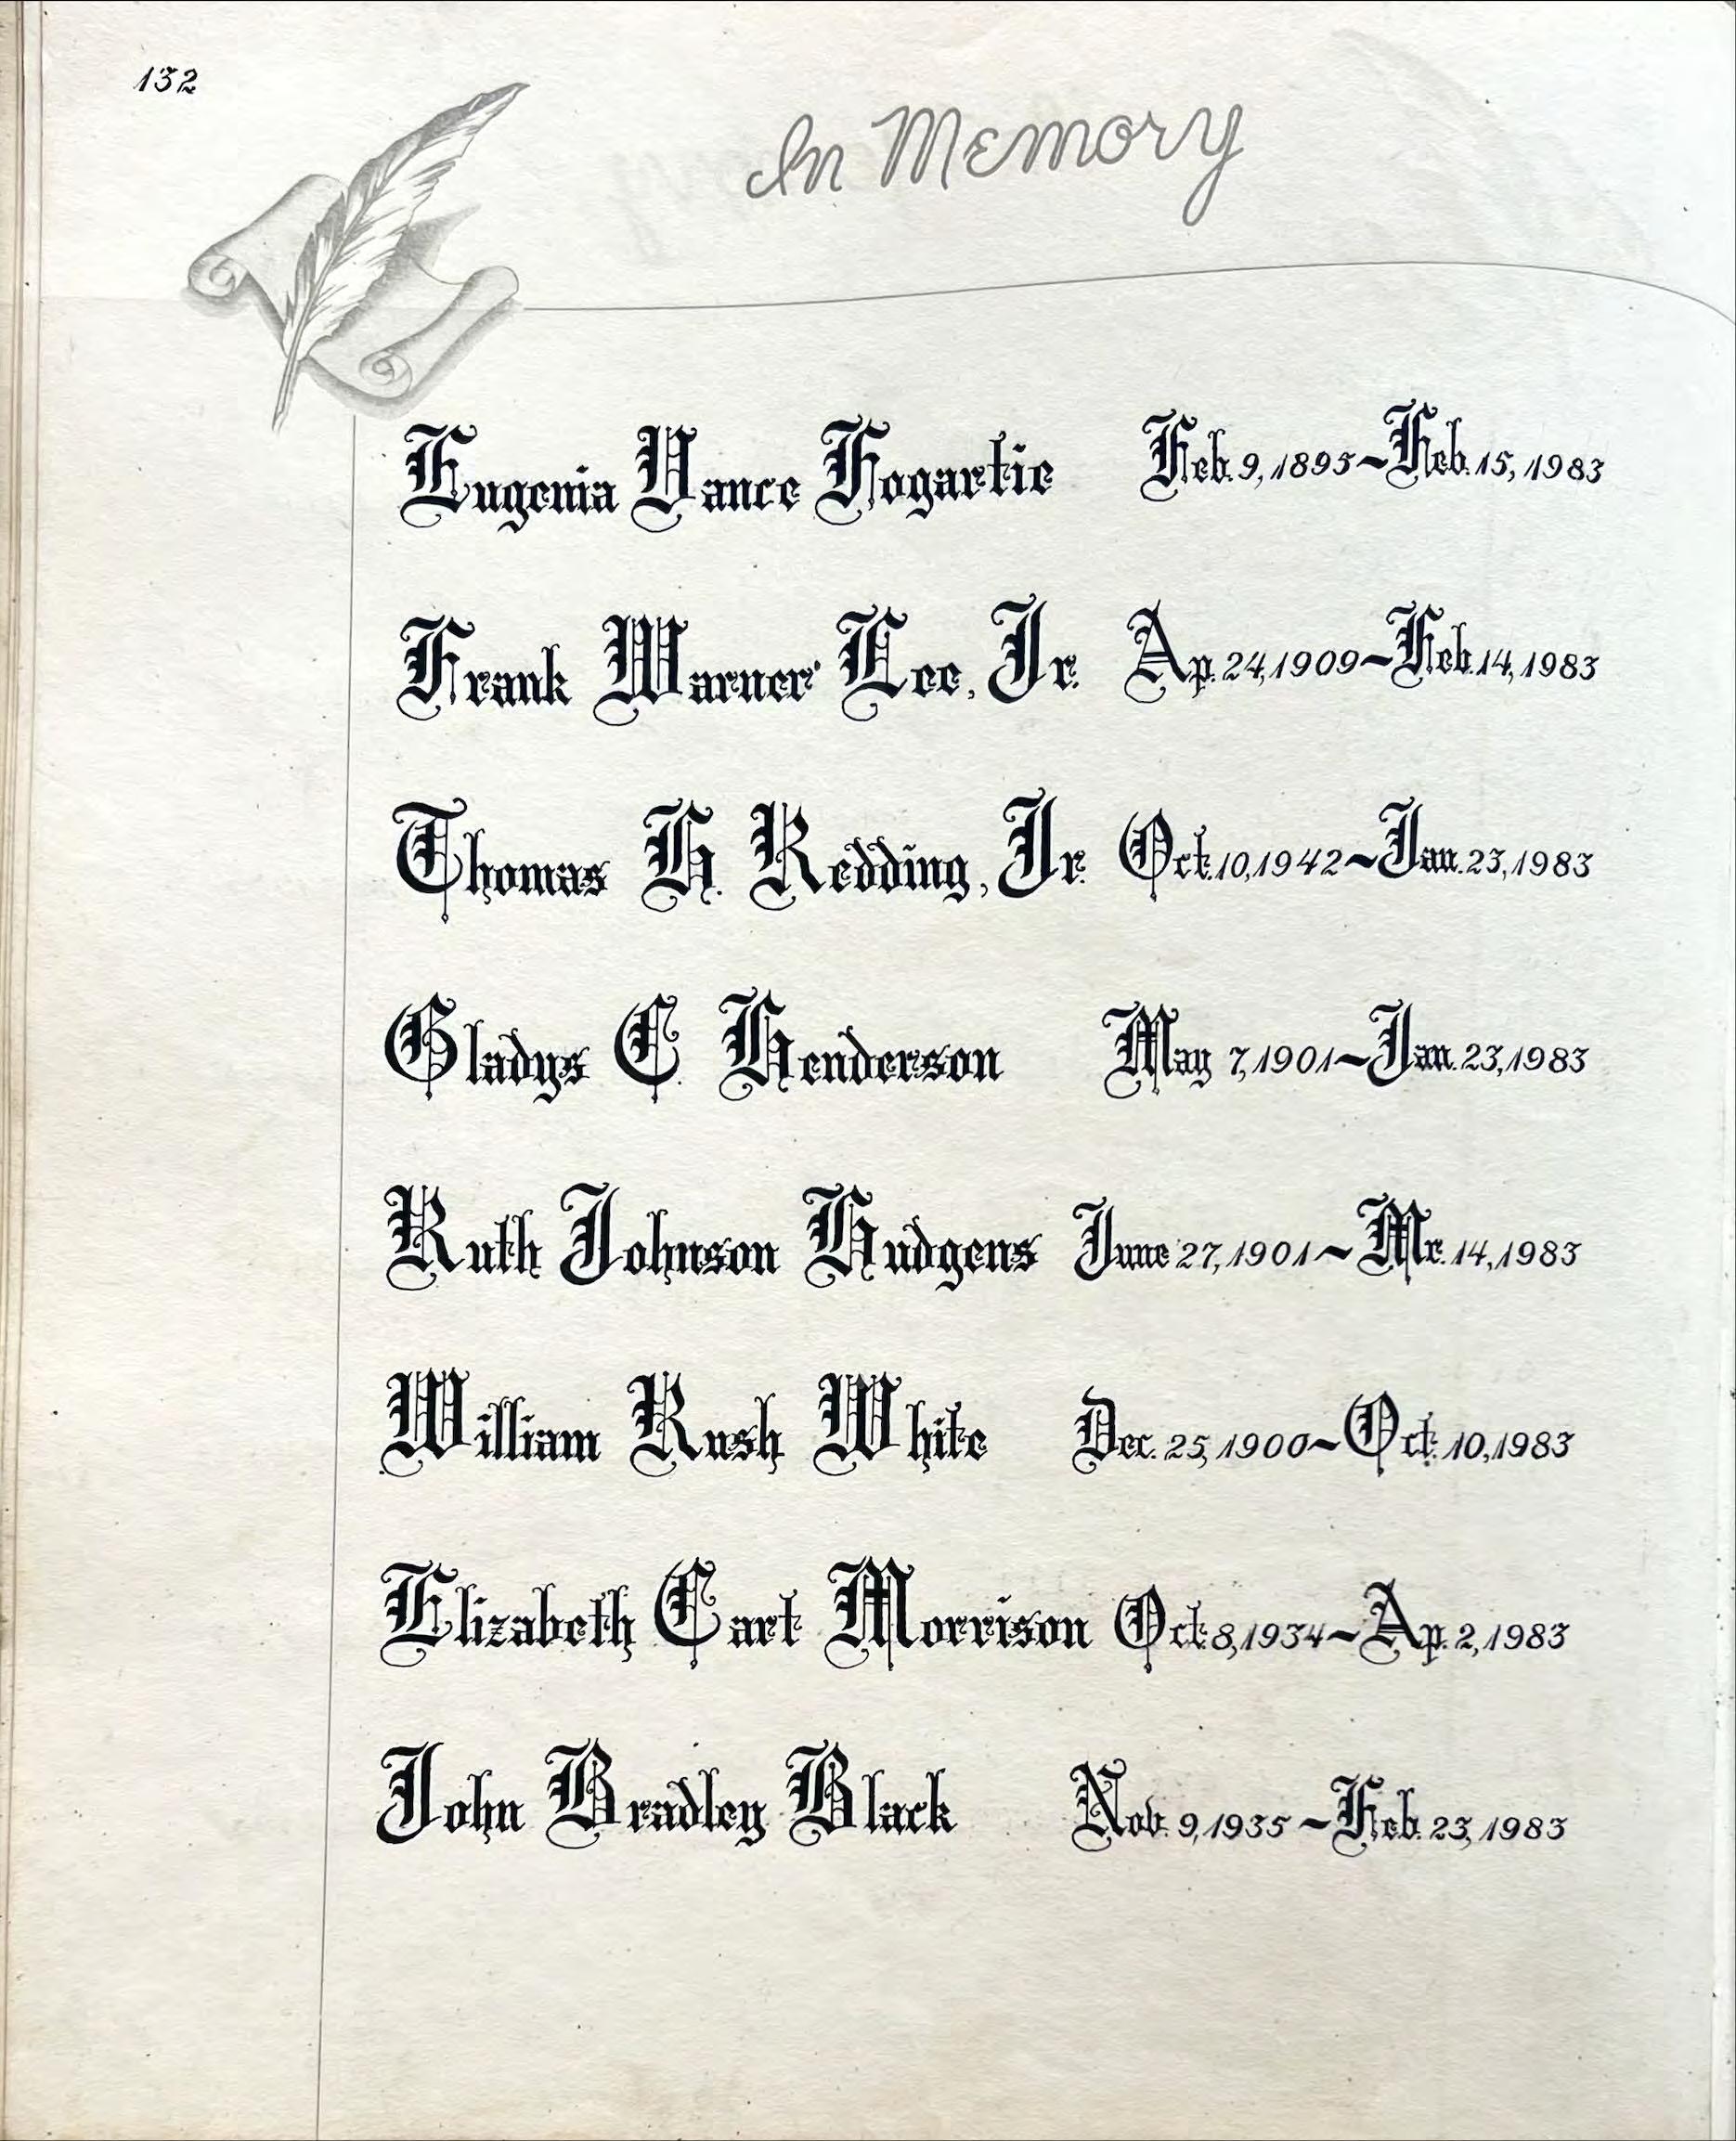 132
In Memory
Eugenia Vance Fogartie Feb. 9, 1895~Feb. 15, 1983
Frank Warner Lee, Jr. Ap. 24, 1909~Feb. 14, 1983
Thomas H. Redding, Jr. Oct. 10, 1942~Jan. 23, 1983
Gladys C. Henderson May 7, 1901~Jan. 23, 1983
Ruth Johnson Hudgens June 27, 1901~Mr. 14, 1983
William Rush White Dec. 25, 1900~Oct. 10, 1983
Elizabeth Cart Morrison Oct. 8, 1934~Ap. 2, 1983
John Bradley Black Nov. 9, 1935~Feb. 23, 1983